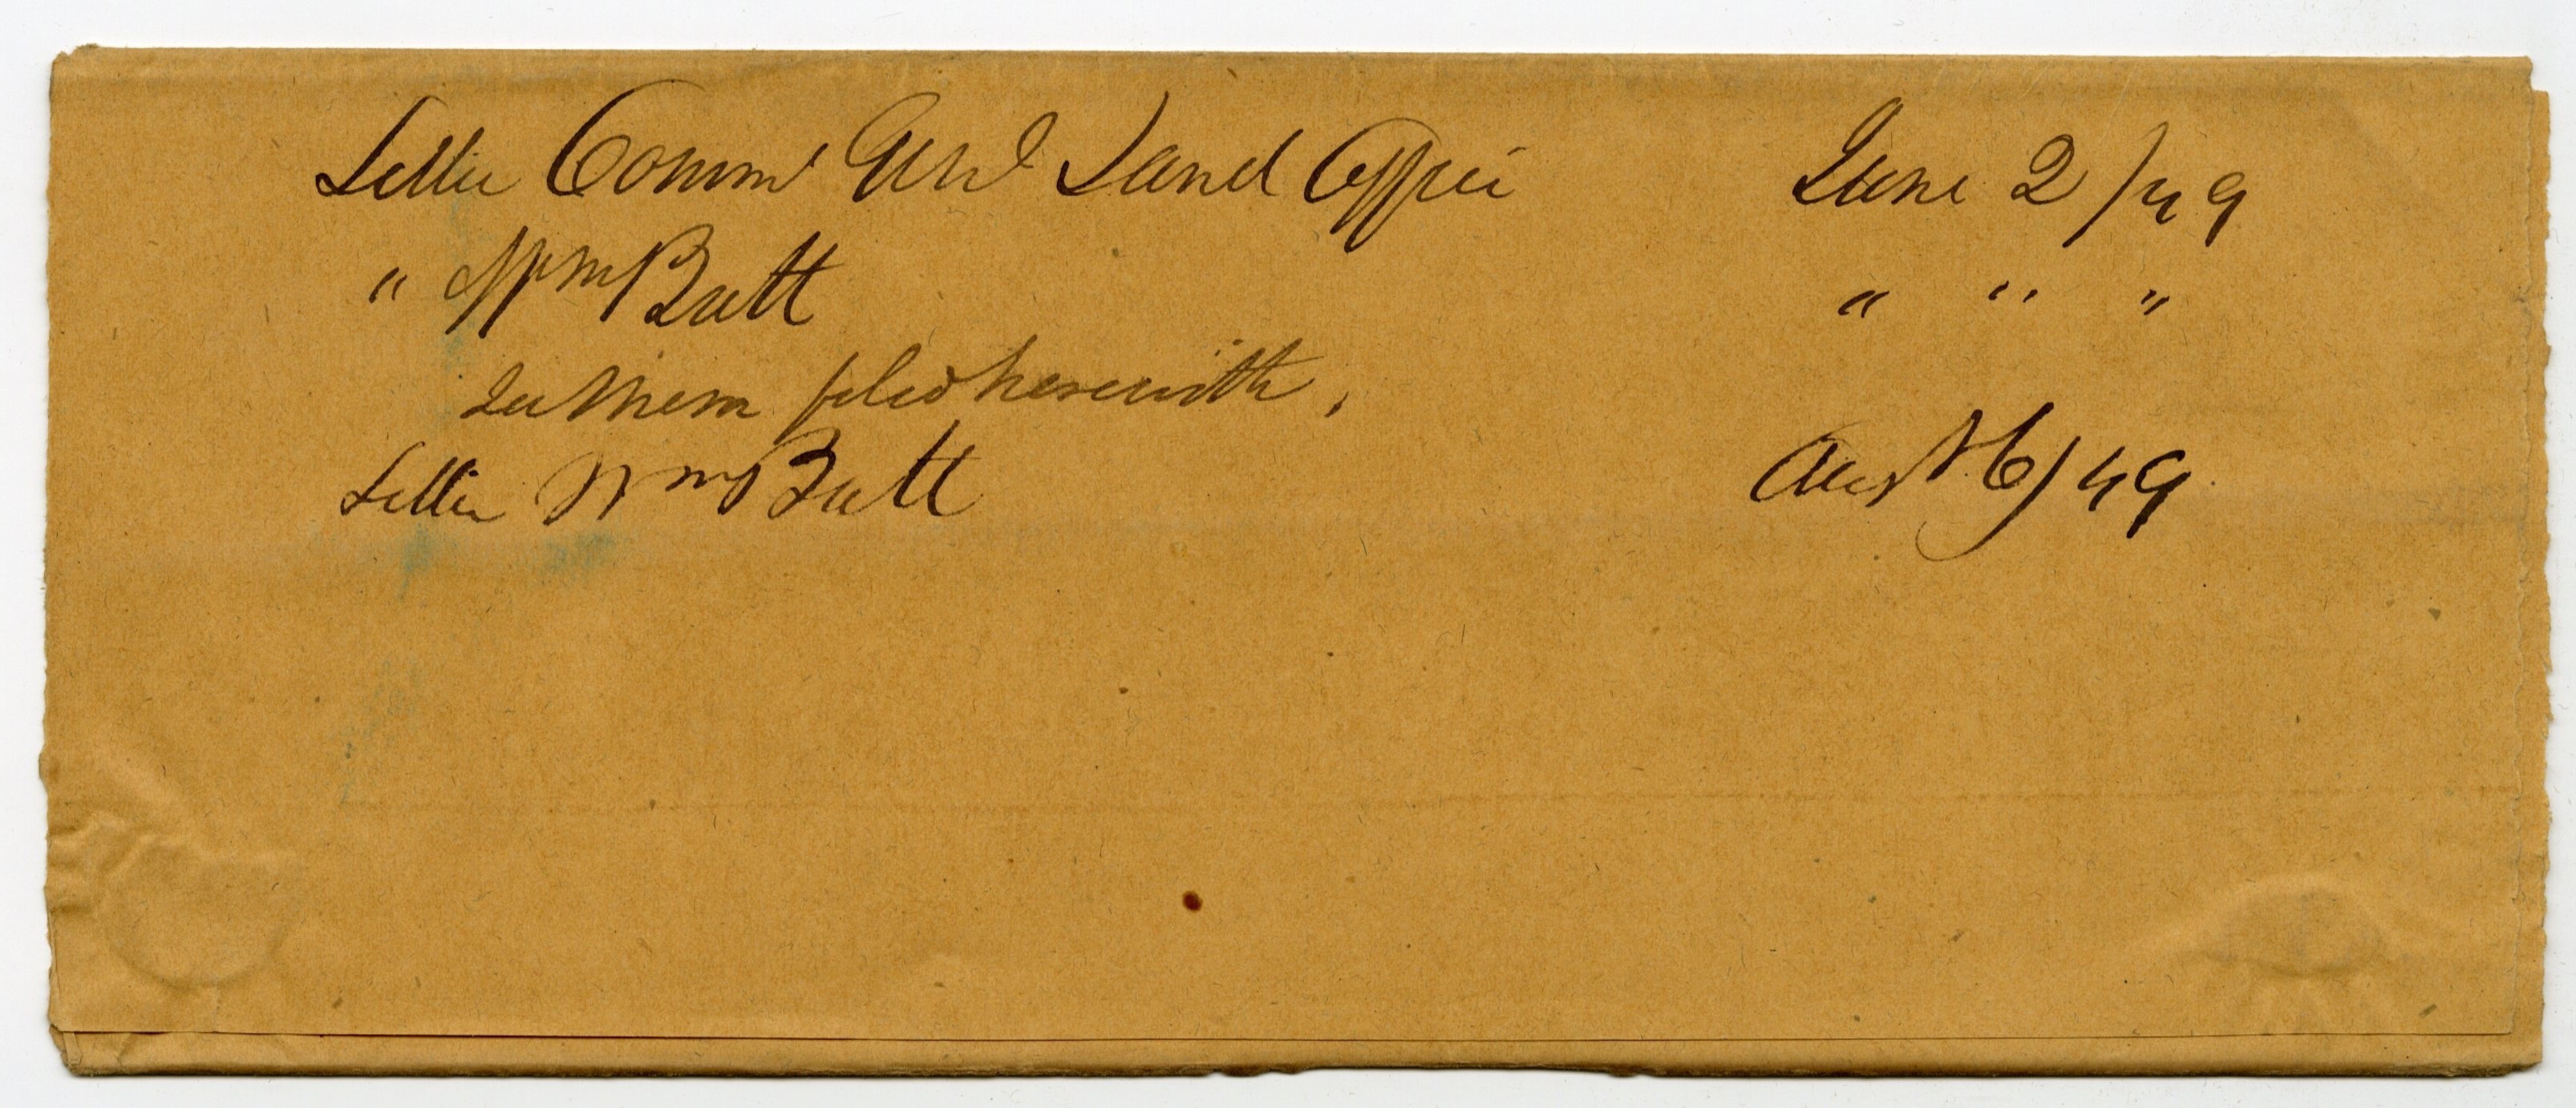 Letter Comm Genl Land Office June 2/49
" Wm Butt " " "
see them filed herewith,
Letter Wm Butt Augst 6/49